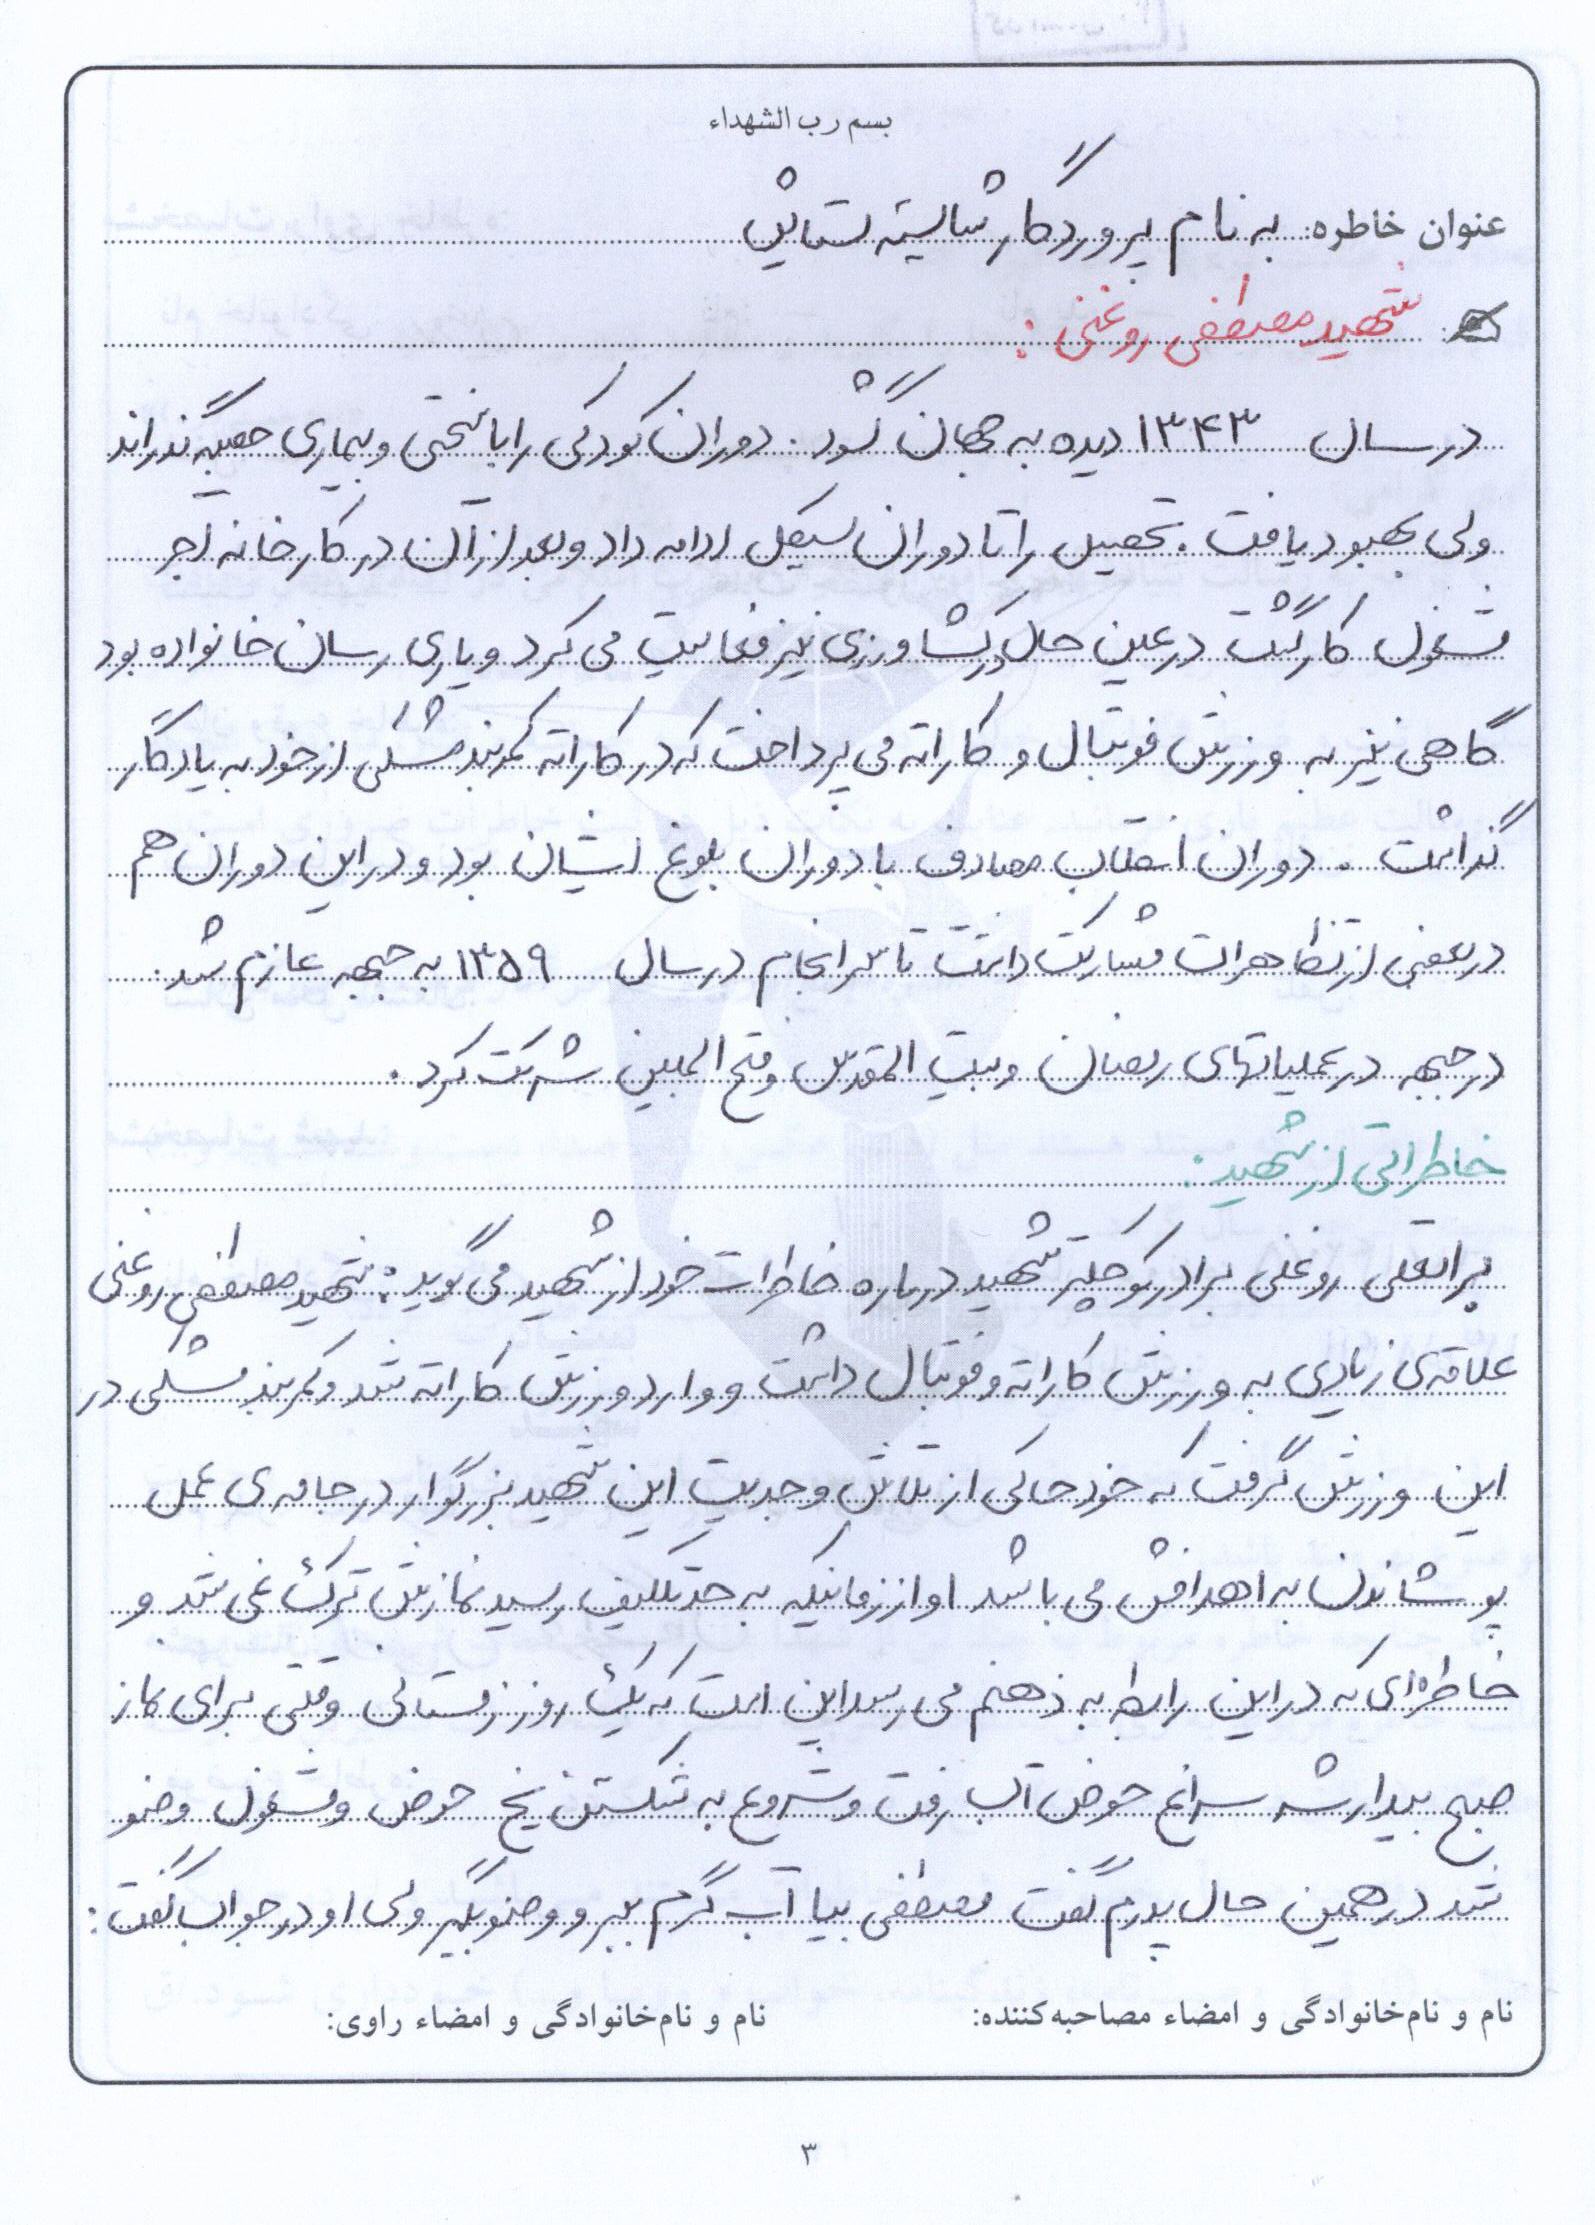 بسم رب الشهداء
عنوان خاطره: به نام پروردگار شایسته ستایش
شهید مصطفی روغنی:
در سال ۱۳۴۳ دیده به جهان گشود. دوران کودکی را با سختی و بیماری حصبه گذراند
ولی بهبود یافت. تحصیل را تا دوران سیکل ادامه داد و بعد از آن در کارخانه آجر
مشغول کار گشت در عین حال در کشاورزی نیز فعالیت می کرد و یاری رسان خانواده بود
گاهی نیز به ورزش فوتبال و کاراته می پرداخت که در کاراته کمربند مشکی از خود به یادگار
گذاشت. دوران انقلاب مصادف با دوران بلوغ ایشان بود و در این دوران هم
در بعضی از تظاهرات مشارکت داشت تا سرانجام در سال ۱۳۵۹ به جبهه عازم شد.
در جبهه در عملیاتهای رمضان و بیت المقدس و فتح المبین شرکت کرد.
خاطراتی از شهید:
براتعلی روغنی برادر کوچکتر شهید درباره خاطرات خود از شهید می گوید: شهید مصطفی روغنی
علاقه ی زیادی به ورزش کاراته و فوتبال داشت و وارد ورزش کاراته شد و کمربند مشکی در
این ورزش گرفت که خود حاکی از تلاش و جدیت این شهید بزرگوار در جامه ی عمل
پوشاندن به اهدافش می باشد او از زمانیکه به حد تکلیف رسید نمازش ترک نمی شد و
خاطره ای که در این رابطه به ذهنم می رسد این است که یک روز زمستانی وقتی برای نماز
صبح بیدار شد سراغ حوض آب رفت و شروع به شکستن یخ حوض و مشغول وضو
شد در همین حال پدرم گفت مصطفی بیا آب گرم ببر و وضو بگیر ولی او در جواب گفت:
نام و نام خانوادگی و امضاء مصاحبه کننده: نام و نام خانوادگی و امضاء راوی:
۳